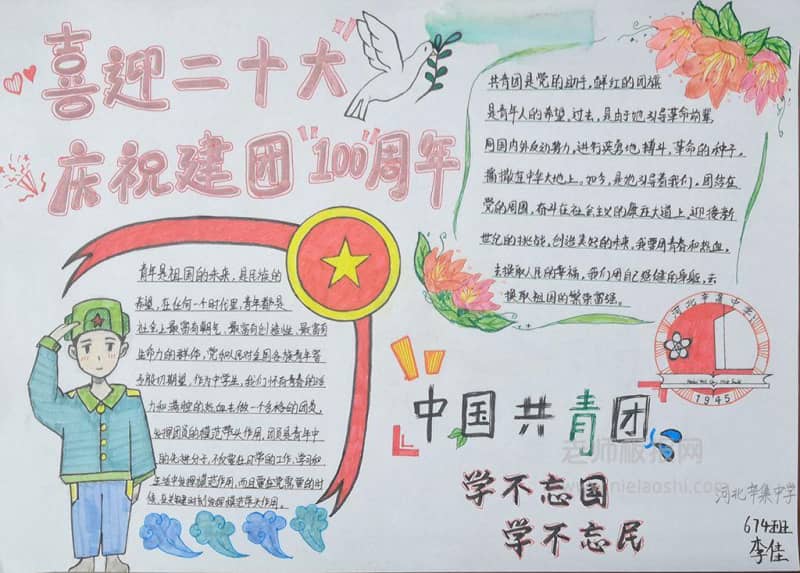 喜迎二十大
庆祝建团"100"周年
共青团是党的助手,鲜红的团旗
是青年人的希望,过去,是由于她引导革命前辈,
同国内外反动势力,进行英勇地,搏斗,革命的种子,
播撒在中华大地上。如今,是她引导着我们,团结在
党的周围,奋斗在社会主义的康庄大道上,迎接新
世纪的挑战,创造美好的未来,我要用青春和热血,
去换取人民的幸福,我们用自己稳健的身躯,去
换取祖国的繁荣富强。
青年是祖国的未来,是民族的
希望,在任何一个时代里,青年都是
社会上最富有朝气,最富有创造性,最富有
生命力的群体,党和人民对全国各族青年寄
与殷切期望,作为中学生,我们怀有青春的活
力和满腔的热血去做一个合格的团员,
发挥团员的模范带头作用,团员是青年中
的先进分子,不仅要在日常的工作,学习和
生活中发挥模范作用,而且要在党需要的时
候,在关键时刻发挥模范带头作用。
河北辛集中学
1945
中国共青团
老师板报网
学不忘国
学不忘民
河北辛集中学
674班
李佳